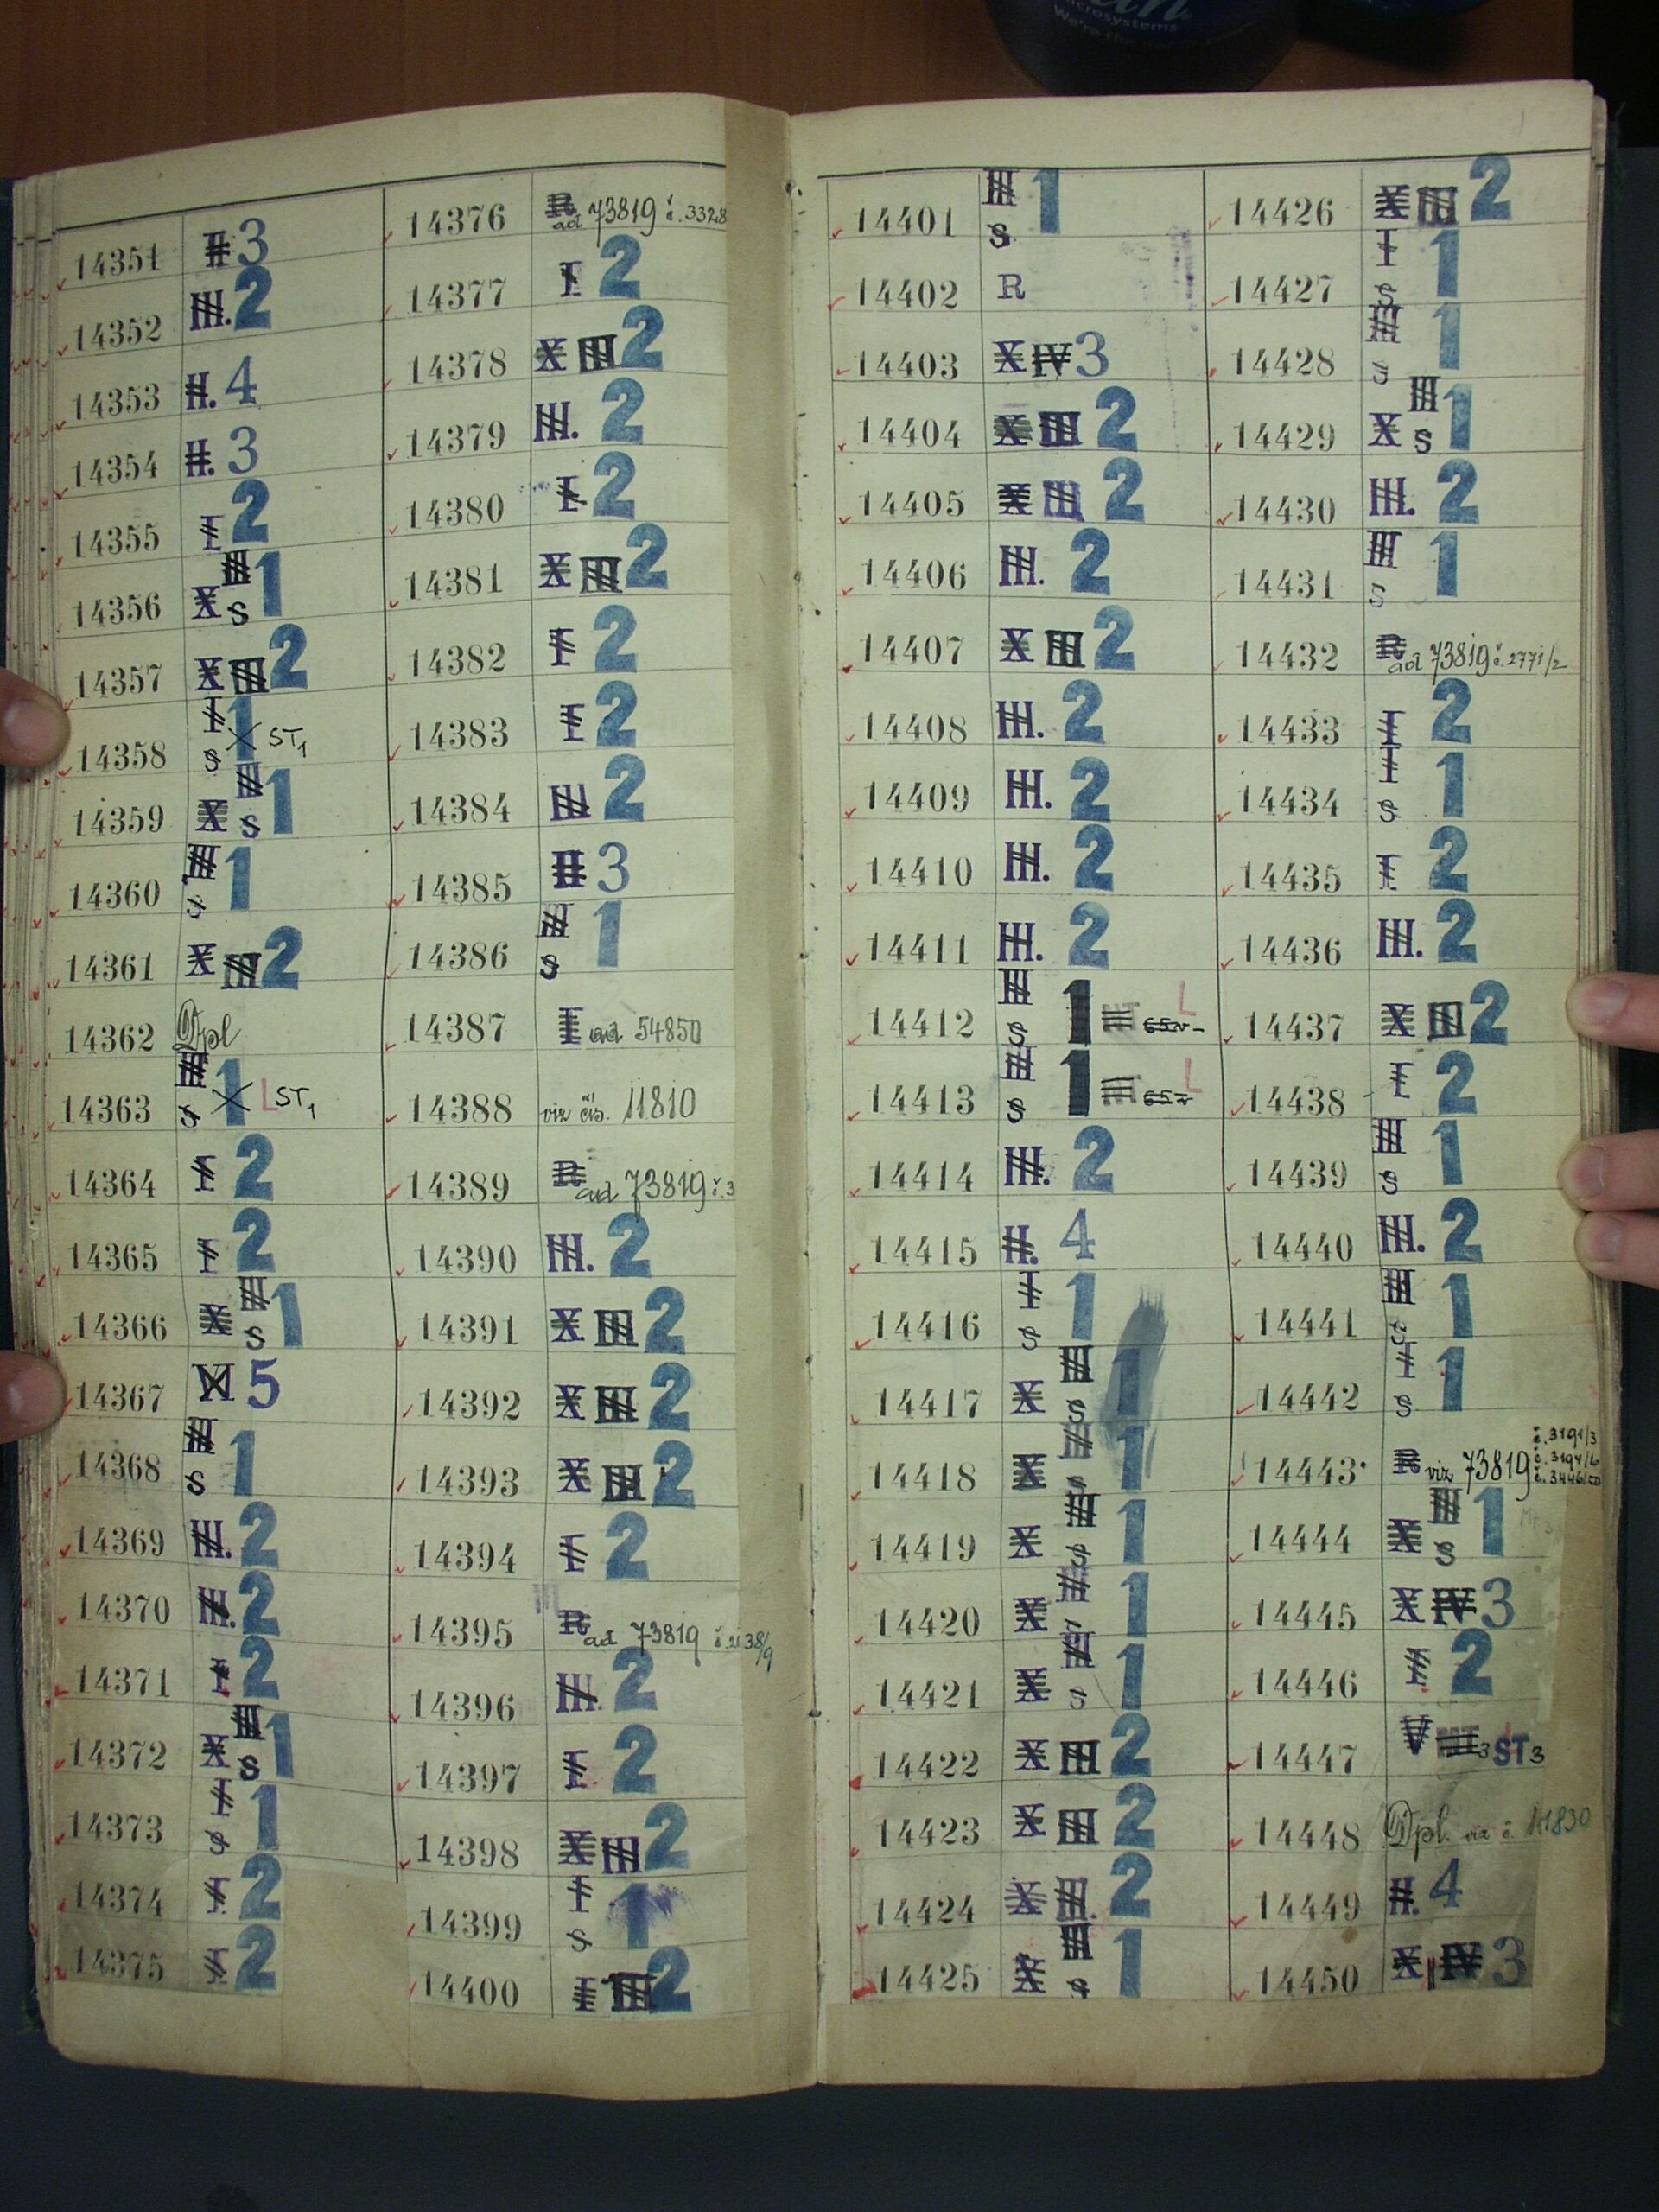 microsystems
14351 II 3
14352 III. 2
14353 II. 4
14354 II. 3
14355 I 2
14356 X III S 1
14357 X III 2
14358 I S 1 X ST1
14359 X III S 1
14360 III S 1
14361 X III 2
14362 Dpl
14363 III S 1 X L ST1
14364 I 2
14365 I 2
14366 X III S 1
14367 VI 5
14368 III S 1
14369 III. 2
14370 III. 2
14371 I 2
14372 X III S 1
14373 I S 1
14374 I 2
14375 I 2
14376 R ad 73819 č. 3328
14377 I 2
14378 X III 2
14379 III. 2
14380 I 2
14381 X III 2
14382 I 2
14383 I 2
14384 III 2
14385 II 3
14386 III S 1
14387 I ad 54850
14388 viz čís. 11810
14389 R ad 73819 č. 3
14390 III. 2
14391 X III 2
14392 X III 2
14393 X III 2
14394 I 2
14395 R ad 73819
14396 III. 2
14397 I 2
14398 X III 2
14399 I S 1
14400 I III 2
14401 III S 1
14402 R
14403 X IV 3
14404 X III 2
14405 X III 2
14406 III. 2
14407 X III 2
14408 III. 2
14409 III. 2
14410 III. 2
14411 III. 2
14412 III S 1 L
14413 III S 1 L
14414 III. 2
14415 II. 4
14416 I S 1
14417 X III S 1
14418 X III S 1
14419 X III S 1
14420 X III 1
14421 X III S 1
14422 X III 2
14423 X III 2
14424 X III. 2
14425 X III S 1
14426 X III 2
14427 I S 1
14428 III S 1
14429 X III S 1
14430 III. 2
14431 III S 1
14432 R ad 73819 č. 2771/2
14433 I 2
14434 I S 1
14435 I 2
14436 III. 2
14437 X III 2
14438 I 2
14439 III S 1
14440 III. 2
14441 III S 1
14442 I S 1
14443 R viz 73819
14444 X III S 1
14445 X IV 3
14446 I 2
14447 V MT3 ST3
14448 Dpl. viz č. 11830
14449 II. 4
14450 X IV 3